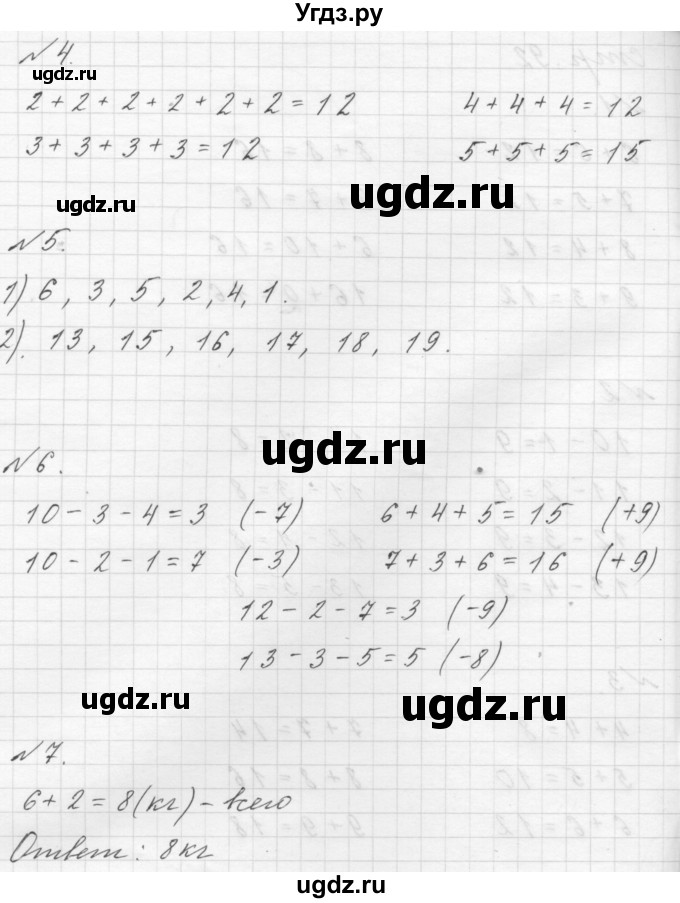 Угдз.ру
№4.
ugdz.ru
2 + 2 + 2 + 2 + 2 + 2 = 12    4 + 4 + 4 = 12
3 + 3 + 3 + 3 = 12    5 + 5 + 5 = 15
ugdz.ru
ugdz.ru
№5.
1) 6, 3, 5, 2, 4, 1.
2). 13, 15, 16, 17, 18, 19.
ugdz.ru
№6.
10 - 3 - 4 = 3 (-7)    6 + 4 + 5 = 15 (+9)
10 - 2 - 1 = 7 (-3)    7 + 3 + 6 = 16 (+9)
12 - 2 - 7 = 3 (-9)
13 - 3 - 5 = 5 (-8)
ugdz.ru
ugdz.ru
№7.
6 + 2 = 8 (кг) - всего
Ответ: 8кг
ugdz.ru